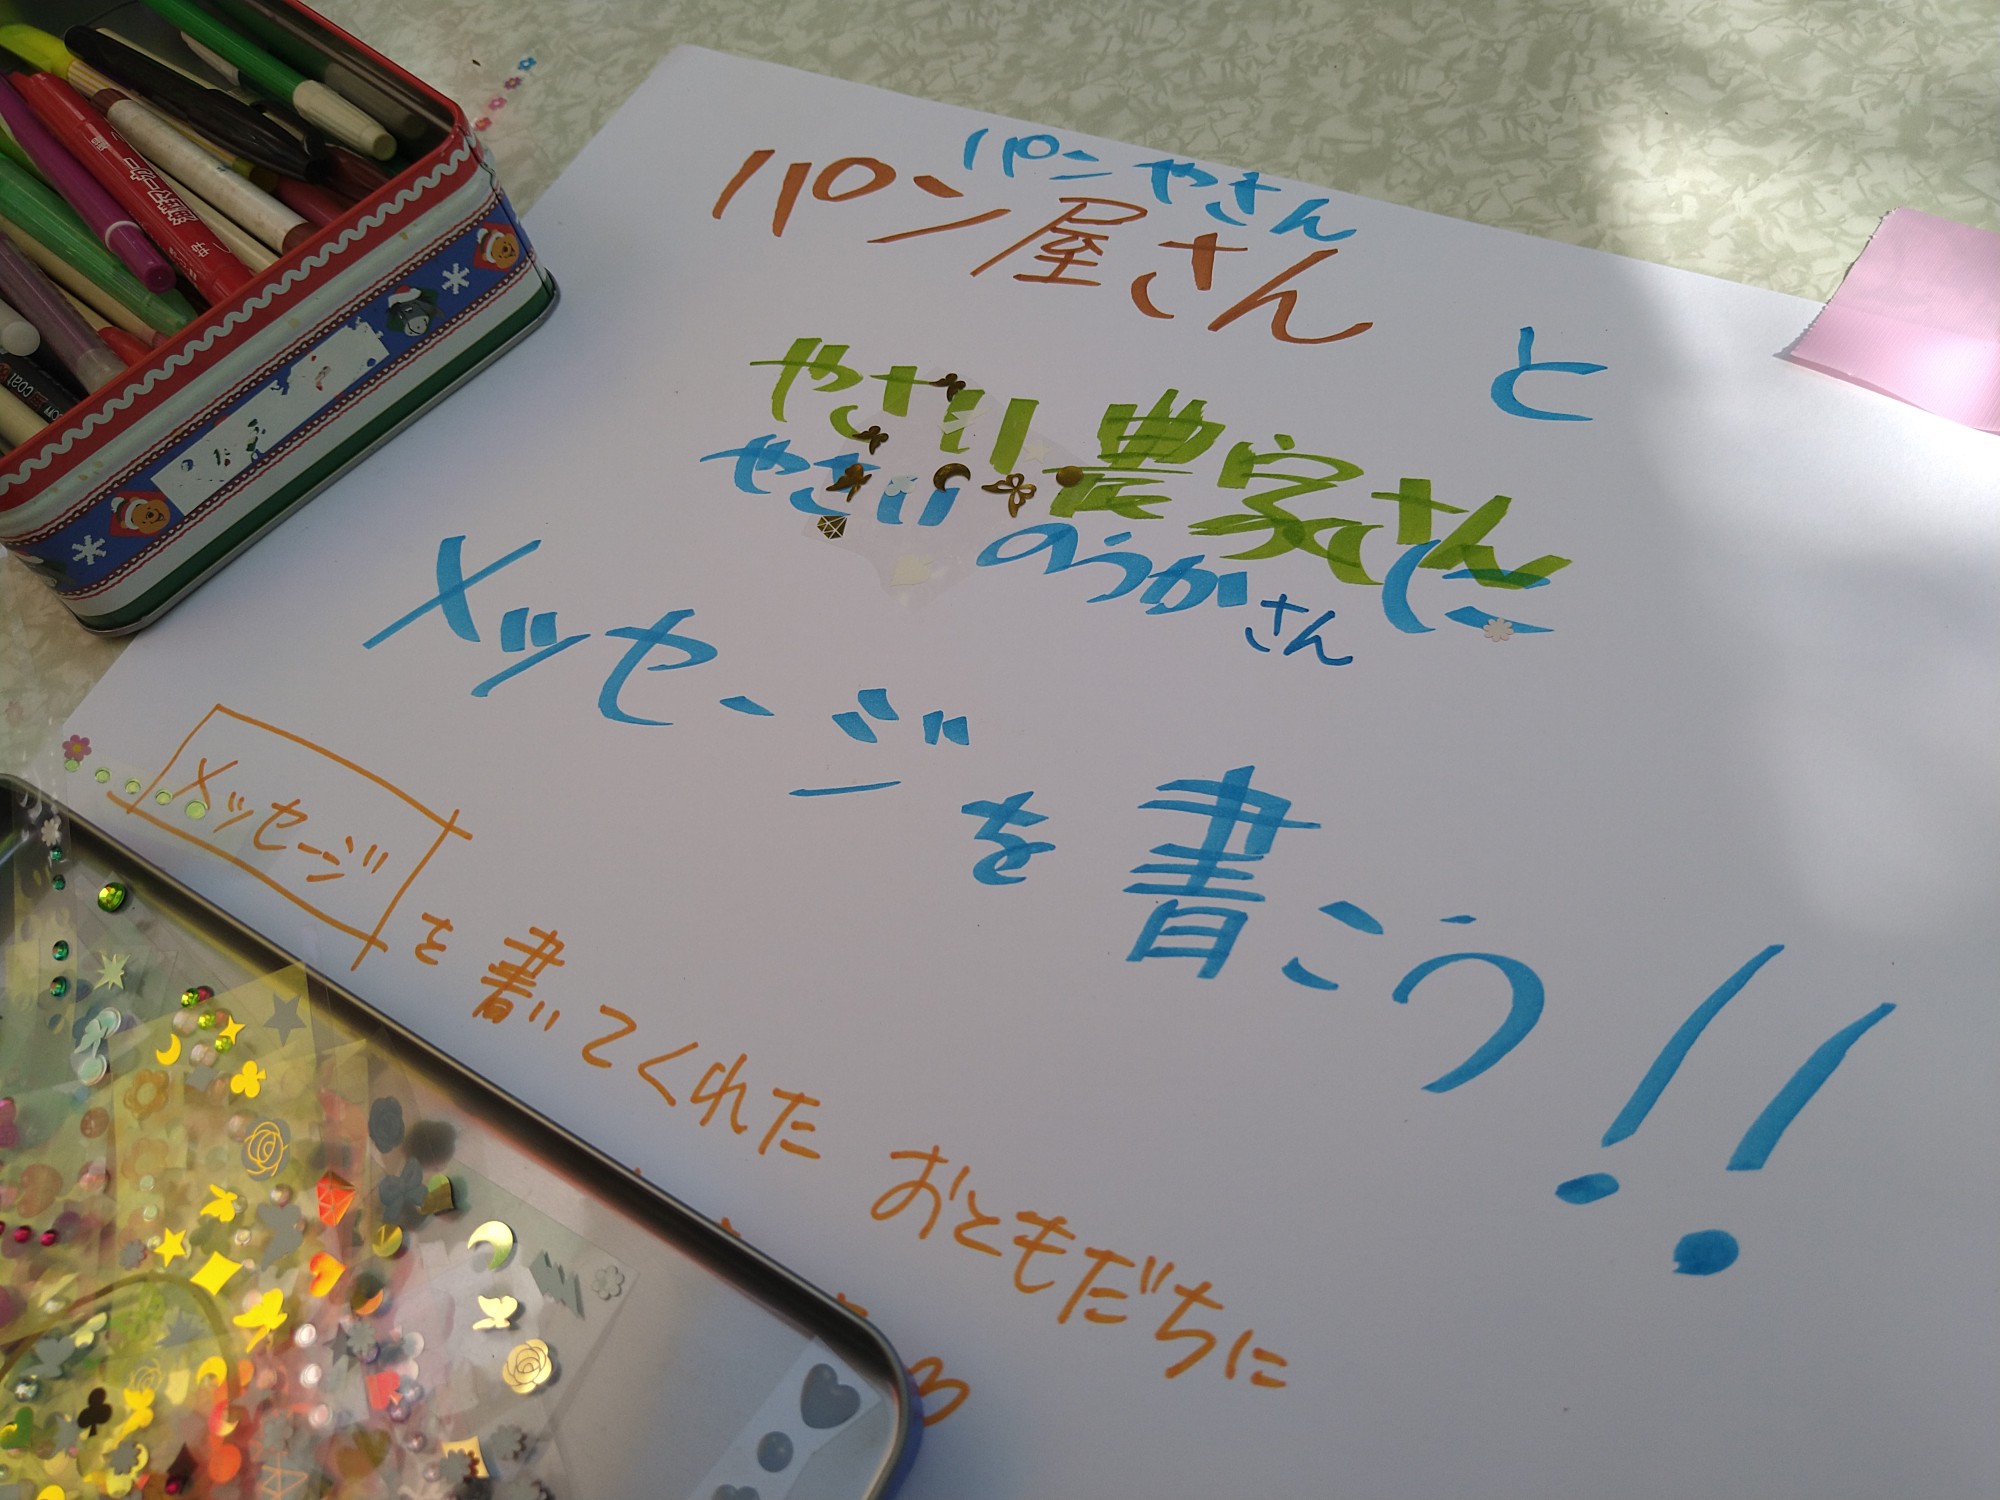 パンやさん
パン屋さん と
やさい農家さんに
やさいのうかさん
メッセージを書こう!!
メッセージを書いてくれたおともだちに